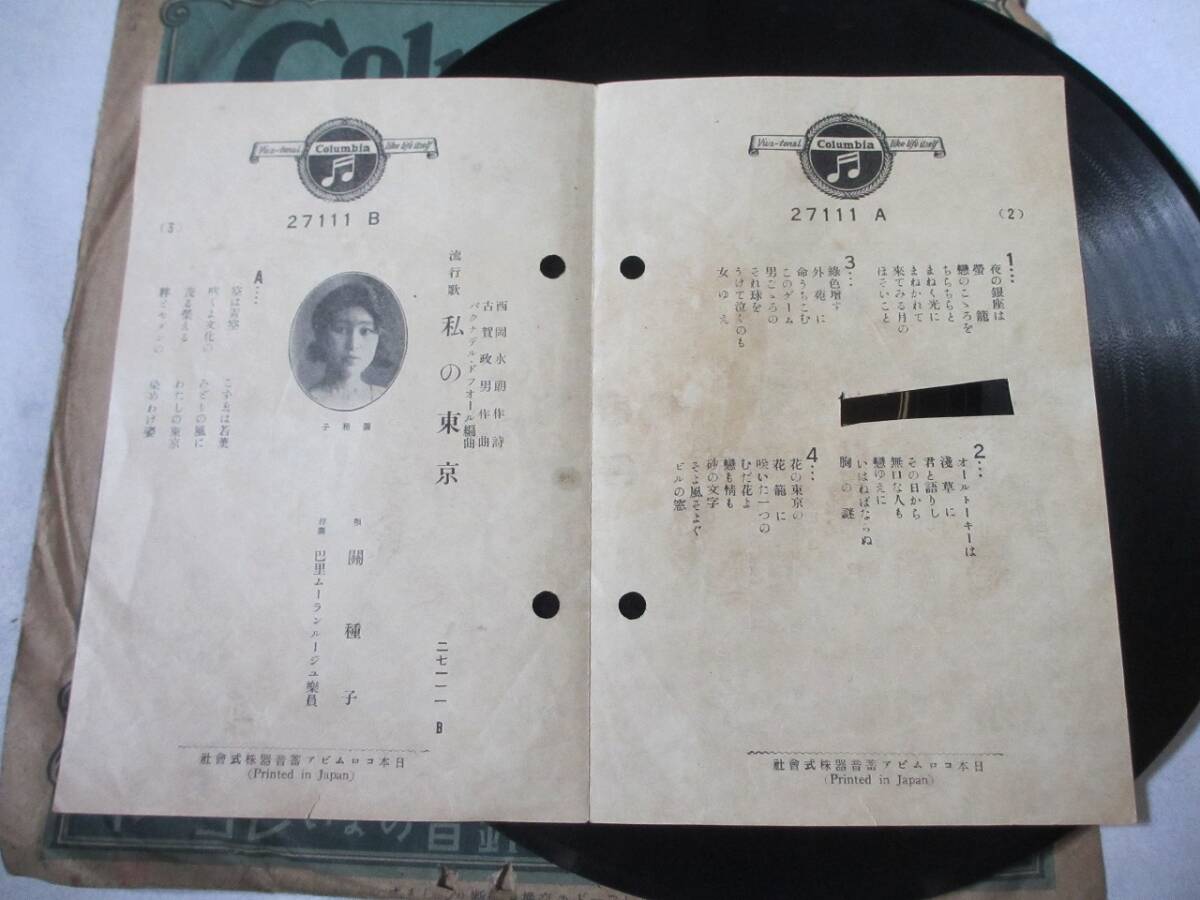 Columbia
Viva-tonal
Columbia
like life itself
27111 A
(2)
1…
夜の銀座は
螢籠
戀のこゝろを
ちらちらと
まねく光に
まねかれて
來てみる月の
ほそいこと
2…
オールトーキーは
淺草に
君と語りし
その日から
無口な人も
戀ゆえに
いはねばならぬ
胸の謎
3…
綠色增す
外苑に
命うちこむ
このゲーム
男ごゝろの
それ球を
うけて泣くのも
女ゆえ
4…
花の東京の
花籠に
咲いた一つの
むだ花よ
戀も情も
砂の文字
そよ風そよぐ
ビルの窓
日本コロムビア蓄音器株式會社
(Printed in Japan)
Viva-tonal
Columbia
like life itself
27111 B
(3)
流行歌
私の東京
西岡水朗作詩
古賀政男作曲
編曲
二七一一一 B
關種子
唄 關種子
伴奏 巴里ムーランルージュ樂員
A…
こずゑは若葉
咲くよ文化の
みどりの風に
茂る榮える
わたしの東京
粹とモダンの
染めわけ姿
日本コロムビア蓄音器株式會社
(Printed in Japan)